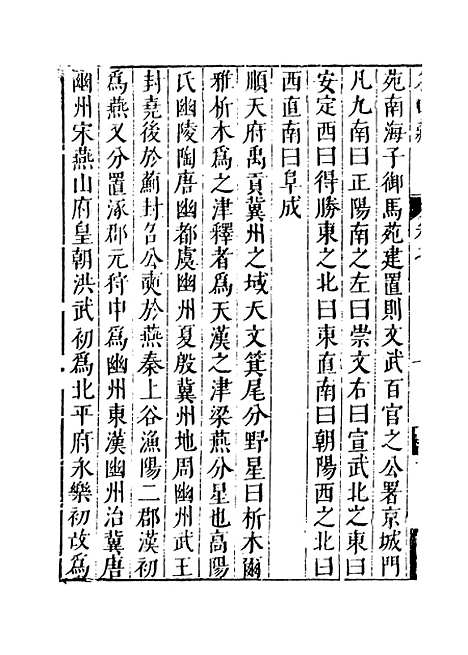 苑南海子御馬苑建置則文武百官之公署京城門
凡九南曰正陽南之左曰崇文右曰宣武北之東曰
安定西曰得勝東之北曰東直南曰朝陽西之北曰
西直南曰阜成
順天府禹貢冀州之域天文箕尾分野星曰析木爾
雅析木爲之津釋者爲天漢之津梁燕分星也高陽
氏幽陵陶唐幽都虞幽州夏殷冀州地周幽州武王
封堯後於薊封召公奭於燕秦上谷漁陽二郡漢初
爲燕又分置涿郡元狩中爲幽州東漢幽州治冀唐
幽州宋燕山府皇朝洪武初爲北平府永樂初改爲